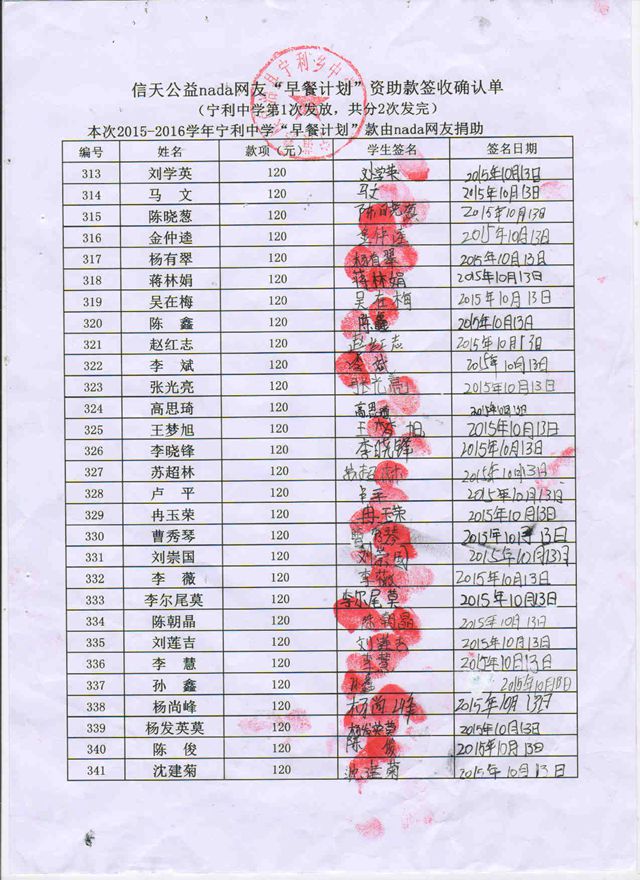 信天公益nada网友“早餐计划”资助款签收确认单
（宁利中学第1次发放，共分2次发完）
本次2015-2016学年宁利中学“早餐计划”款由nada网友捐助
编号 姓名 款项（元） 学生签名 签名日期
313 刘学英 120 刘学英 2015年10月13日
314 马 文 120 马文 2015年10月13日
315 陈晓葱 120 陈晓葱 2015年10月13日
316 金仲逵 120 金仲逵 2015年10月13日
317 杨有翠 120 杨有翠 2015年10月13日
318 蒋林娟 120 蒋林娟 2015年10月13日
319 吴在梅 120 吴在梅 2015年10月13日
320 陈 鑫 120 陈鑫 2015年10月13日
321 赵红志 120 赵红志 2015年10月13日
322 李 斌 120 李斌 2015年10月13日
323 张光亮 120 张光亮 2015年10月13日
324 高思琦 120 高思琦 2015年10月13日
325 王梦旭 120 王梦旭 2015年10月13日
326 李晓锋 120 李晓锋 2015年10月13日
327 苏超林 120 苏超林 2015年10月13日
328 卢 平 120 卢平 2015年10月13日
329 冉玉荣 120 冉玉荣 2015年10月13日
330 曹秀琴 120 曹秀琴 2015年10月13日
331 刘崇国 120 刘崇国 2015年10月13日
332 李 薇 120 李薇 2015年10月13日
333 李尔尾莫 120 李尔尾莫 2015年10月13日
334 陈朝晶 120 陈朝晶 2015年10月13日
335 刘莲吉 120 刘莲吉 2015年10月13日
336 李 慧 120 李慧 2015年10月13日
337 孙 鑫 120 孙鑫 2015年10月13日
338 杨尚峰 120 杨尚峰 2015年10月13日
339 杨发英莫 120 杨发英莫 2015年10月13日
340 陈 俊 120 陈俊 2015年10月13日
341 沈建菊 120 沈建菊 2015年10月13日